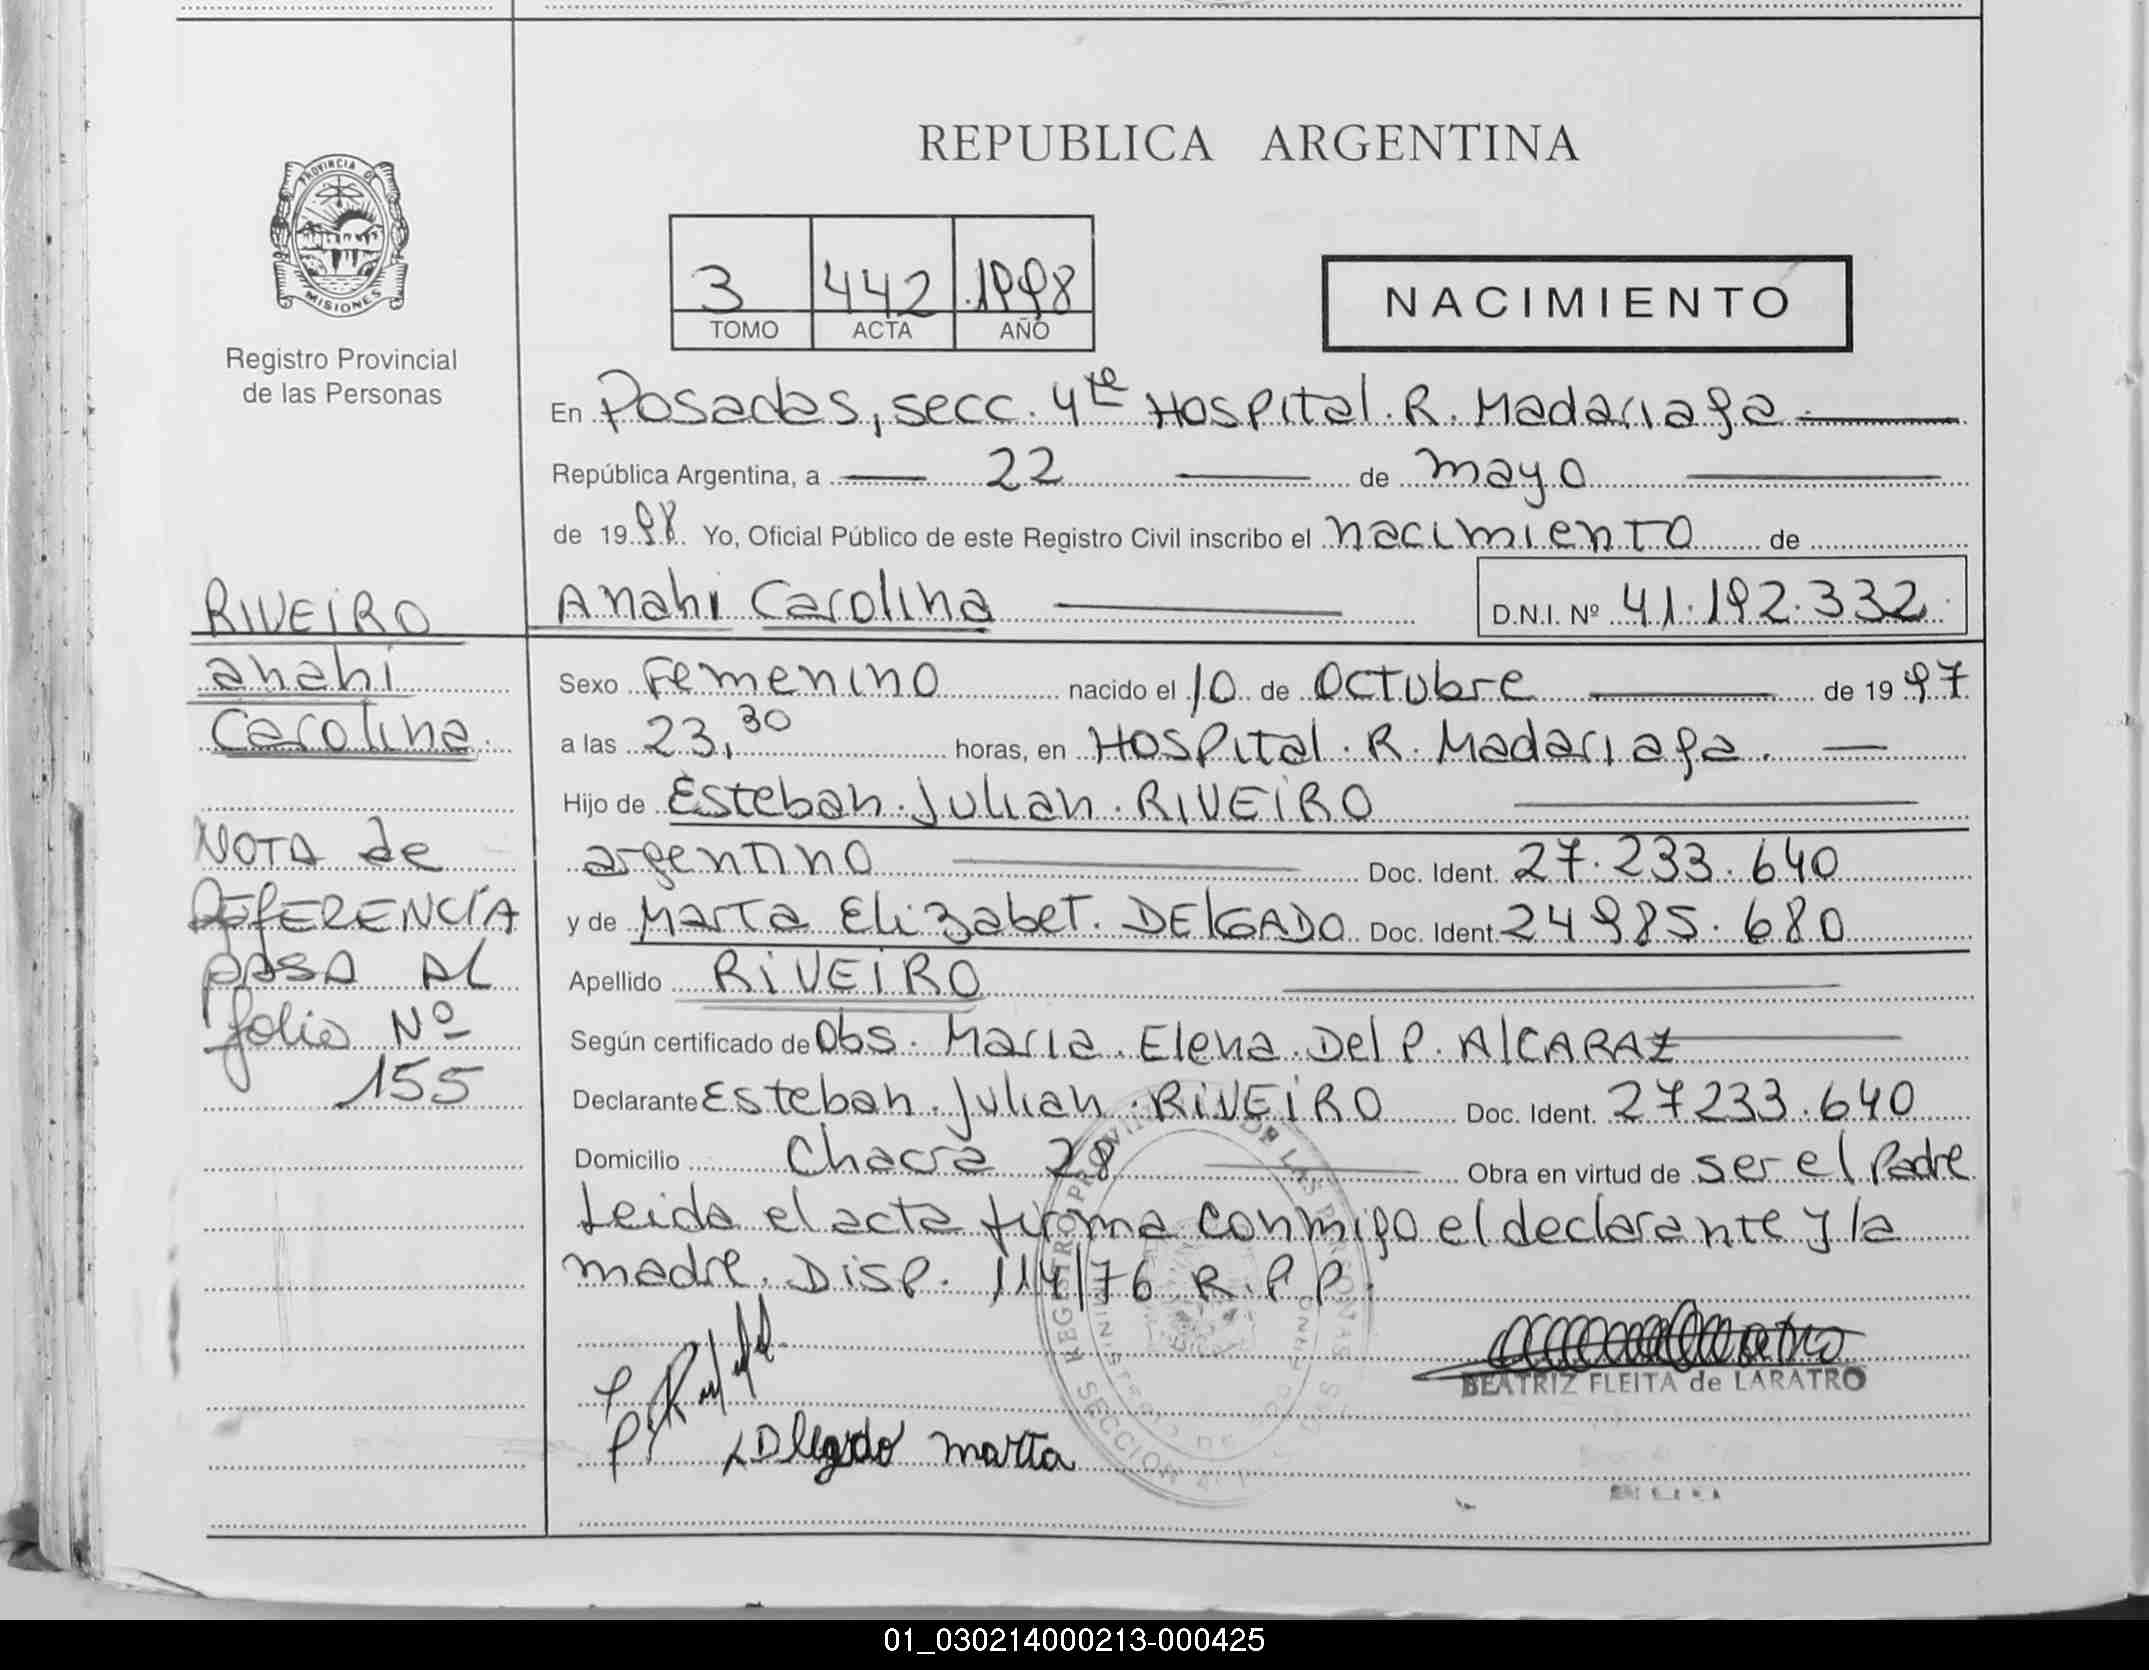 REPUBLICA ARGENTINA
PROVINCIA DE
MISIONES
Registro Provincial
de las Personas
3 442 1998
TOMO ACTA AÑO
NACIMIENTO
En Posadas, secc. 4ta Hospital R. Madariaga
República Argentina, a 22 de mayo
de 1998 Yo, Oficial Público de este Registro Civil inscribo el nacimiento de
Anahi Carolina D.N.I. Nº 41.192.332
RIVEIRO
anahi
Carolina
NOTA de
REFERENCIA
PASA AL
folio Nº
155
Sexo Femenino nacido el 10 de Octubre de 1997
a las 23,30 horas, en Hospital R. Madariaga.
Hijo de Esteban Julian RIVEIRO
argentino Doc. Ident. 27.233.640
y de Marta Elizabet DELGADO Doc. Ident. 24985.680
Apellido RIVEIRO
Según certificado de Obs. Maria Elena Del P. AlCARAZ
Declarante Esteban Julian RIVEIRO Doc. Ident. 27233.640
Domicilio Chacra 28 Obra en virtud de ser el Padre
Leida el acta firma conmigo el declarante y la
madre. Disp. 114/76 R.P.P.
Delgado marta
BEATRIZ FLEITA de LARATRO
01_030214000213-000425